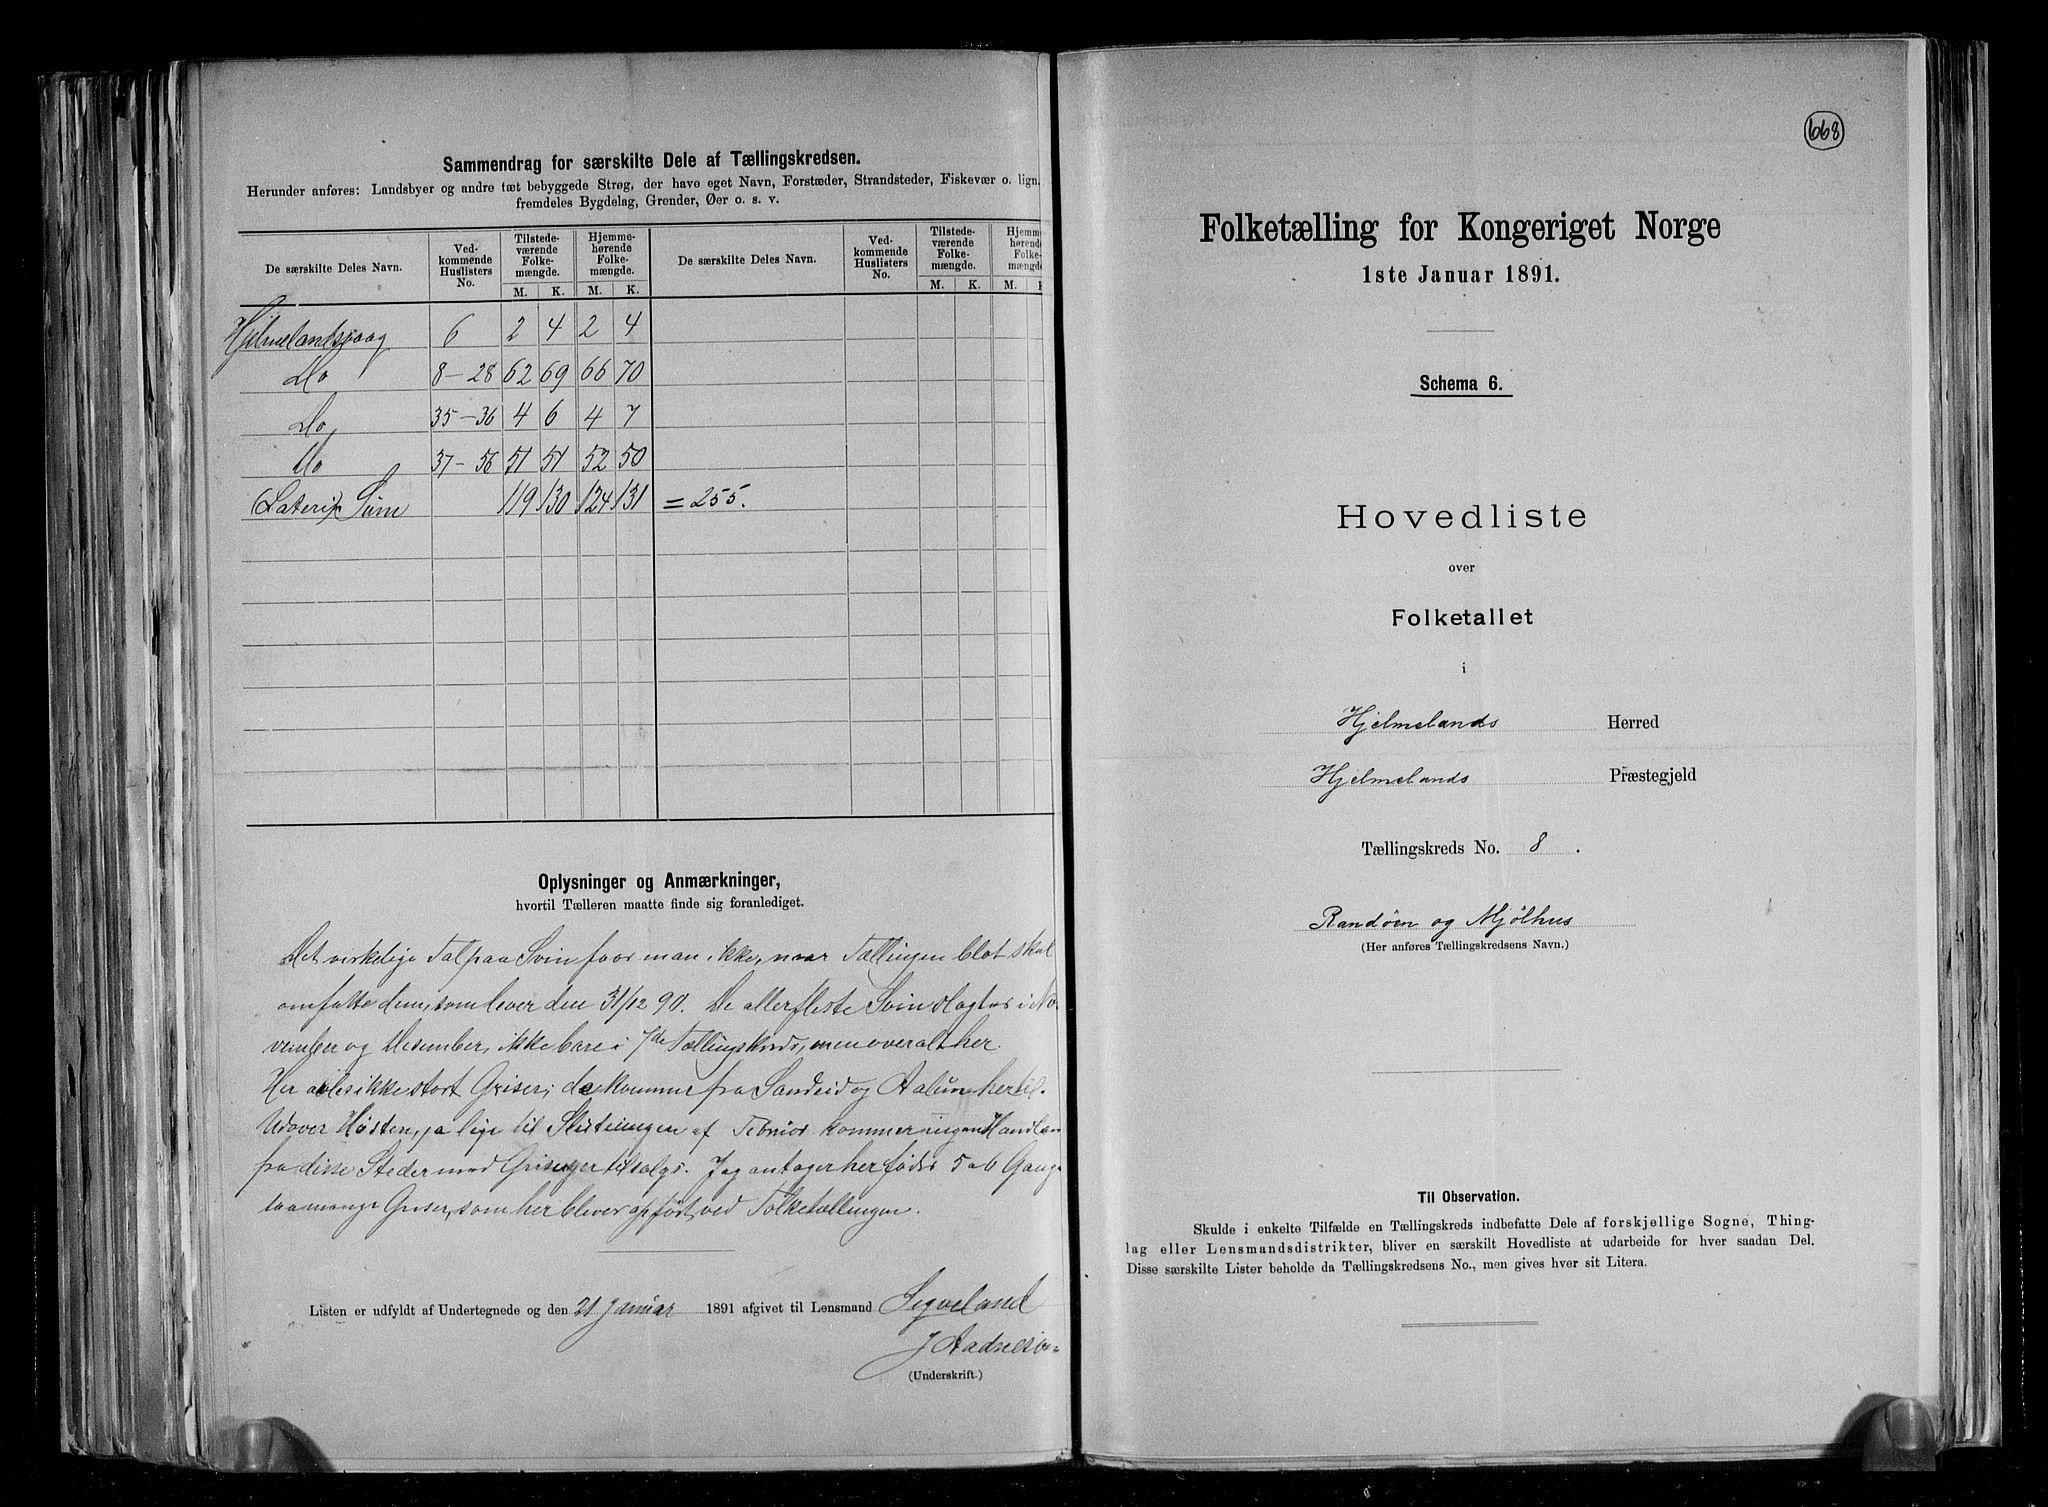 Sammendrag for særskilte Dele af Tællingskredsen.
Herunder anføres: Landsbyer og andre tæt bebyggede Strøg, der have eget Navn, Forstæder, Strandsteder, Fiskevær o. lign.
fremdeles Bygdelag, Grender, Øer o. s. v.
De særskilte Deles Navn. Ved-kommende Huslisters No. Tilstede-værende Folke-mængde. Hjemme-hørende Folke-mængde. De særskilte Deles Navn. Ved-kommende Huslisters No. Tilstede-værende Folke-mængde. Hjem-hørende Folke-mængde
M. K. M. K. M. K. M. K
Hjelmelandsvaag 6 2 4 2 4
Do 8-28 62 69 66 70
Do 35-36 4 6 4 7
Do 37-56 51 51 52 50
(Lateris) Sum 119 130 124 131 = 255.
Oplysninger og Anmærkninger,
hvortil Tælleren maatte finde sig foranlediget.
Det virkelige Tal paa Svin faar man ikke, naar Tællingen blot skal
omfatte dem, som lever den 31/12 90. De allerfleste Svin slagtes i No-
vember og Desember, ikke bare i 7de Tællingskreds, men overalt her.
Her avles ikke stort Griser; de kommer fra Sandeid og Aalun hertil.
Udover Høsten, ja lige til Slutningen af Februar kommer ingen Handlen
fra disse Steder med Griser tilsalgs. Jeg antager her fødes 5 a 6 Gange
saa mange Griser, som her blever opført ved Folketællingen.
Listen er udfyldt af Undertegnede og den 21 Januar 1891 afgivet til Lensmand Segveland
J Aadnesen
(Underskrift.)
668
Folketælling for Kongeriget Norge
1ste Januar 1891.
Schema 6.
Hovedliste
over
Folketallet
i
Hjelmelands Herred
Hjelmelands Præstegjeld
Tællingskreds No. 8.
Randøen og Mjølhus
(Her anføres Tællingskredsens Navn.)
Til Observation.
Skulde i enkelte Tilfælde en Tællingskreds indbefatte Dele af forskjellige Sogne, Thing-
lag eller Lensmandsdistrikter, bliver en særskilt Hovedliste at udarbeide for hver saadan Del.
Disse særskilte Lister beholde da Tællingskredsens No., men gives hver sit Litera.